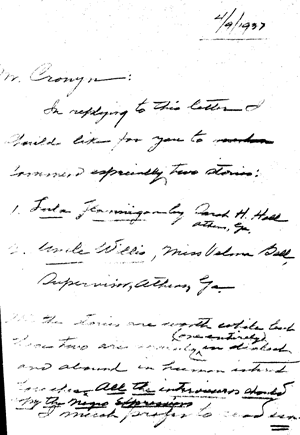 4/9/1937
Mr. Cronyn:
In replying to this letter I
should like for you to
commend especially two stories:
1. by Sarah H. Hall
Athens, Ga.
2. Uncle Willis, Miss Velma Bell,
Supervisor, Athens, Ga.
All the stories are worth while but
these two are in dialect
and abound in human interest
All the interviewers should
copy the Negro expressions
I much prefer to read